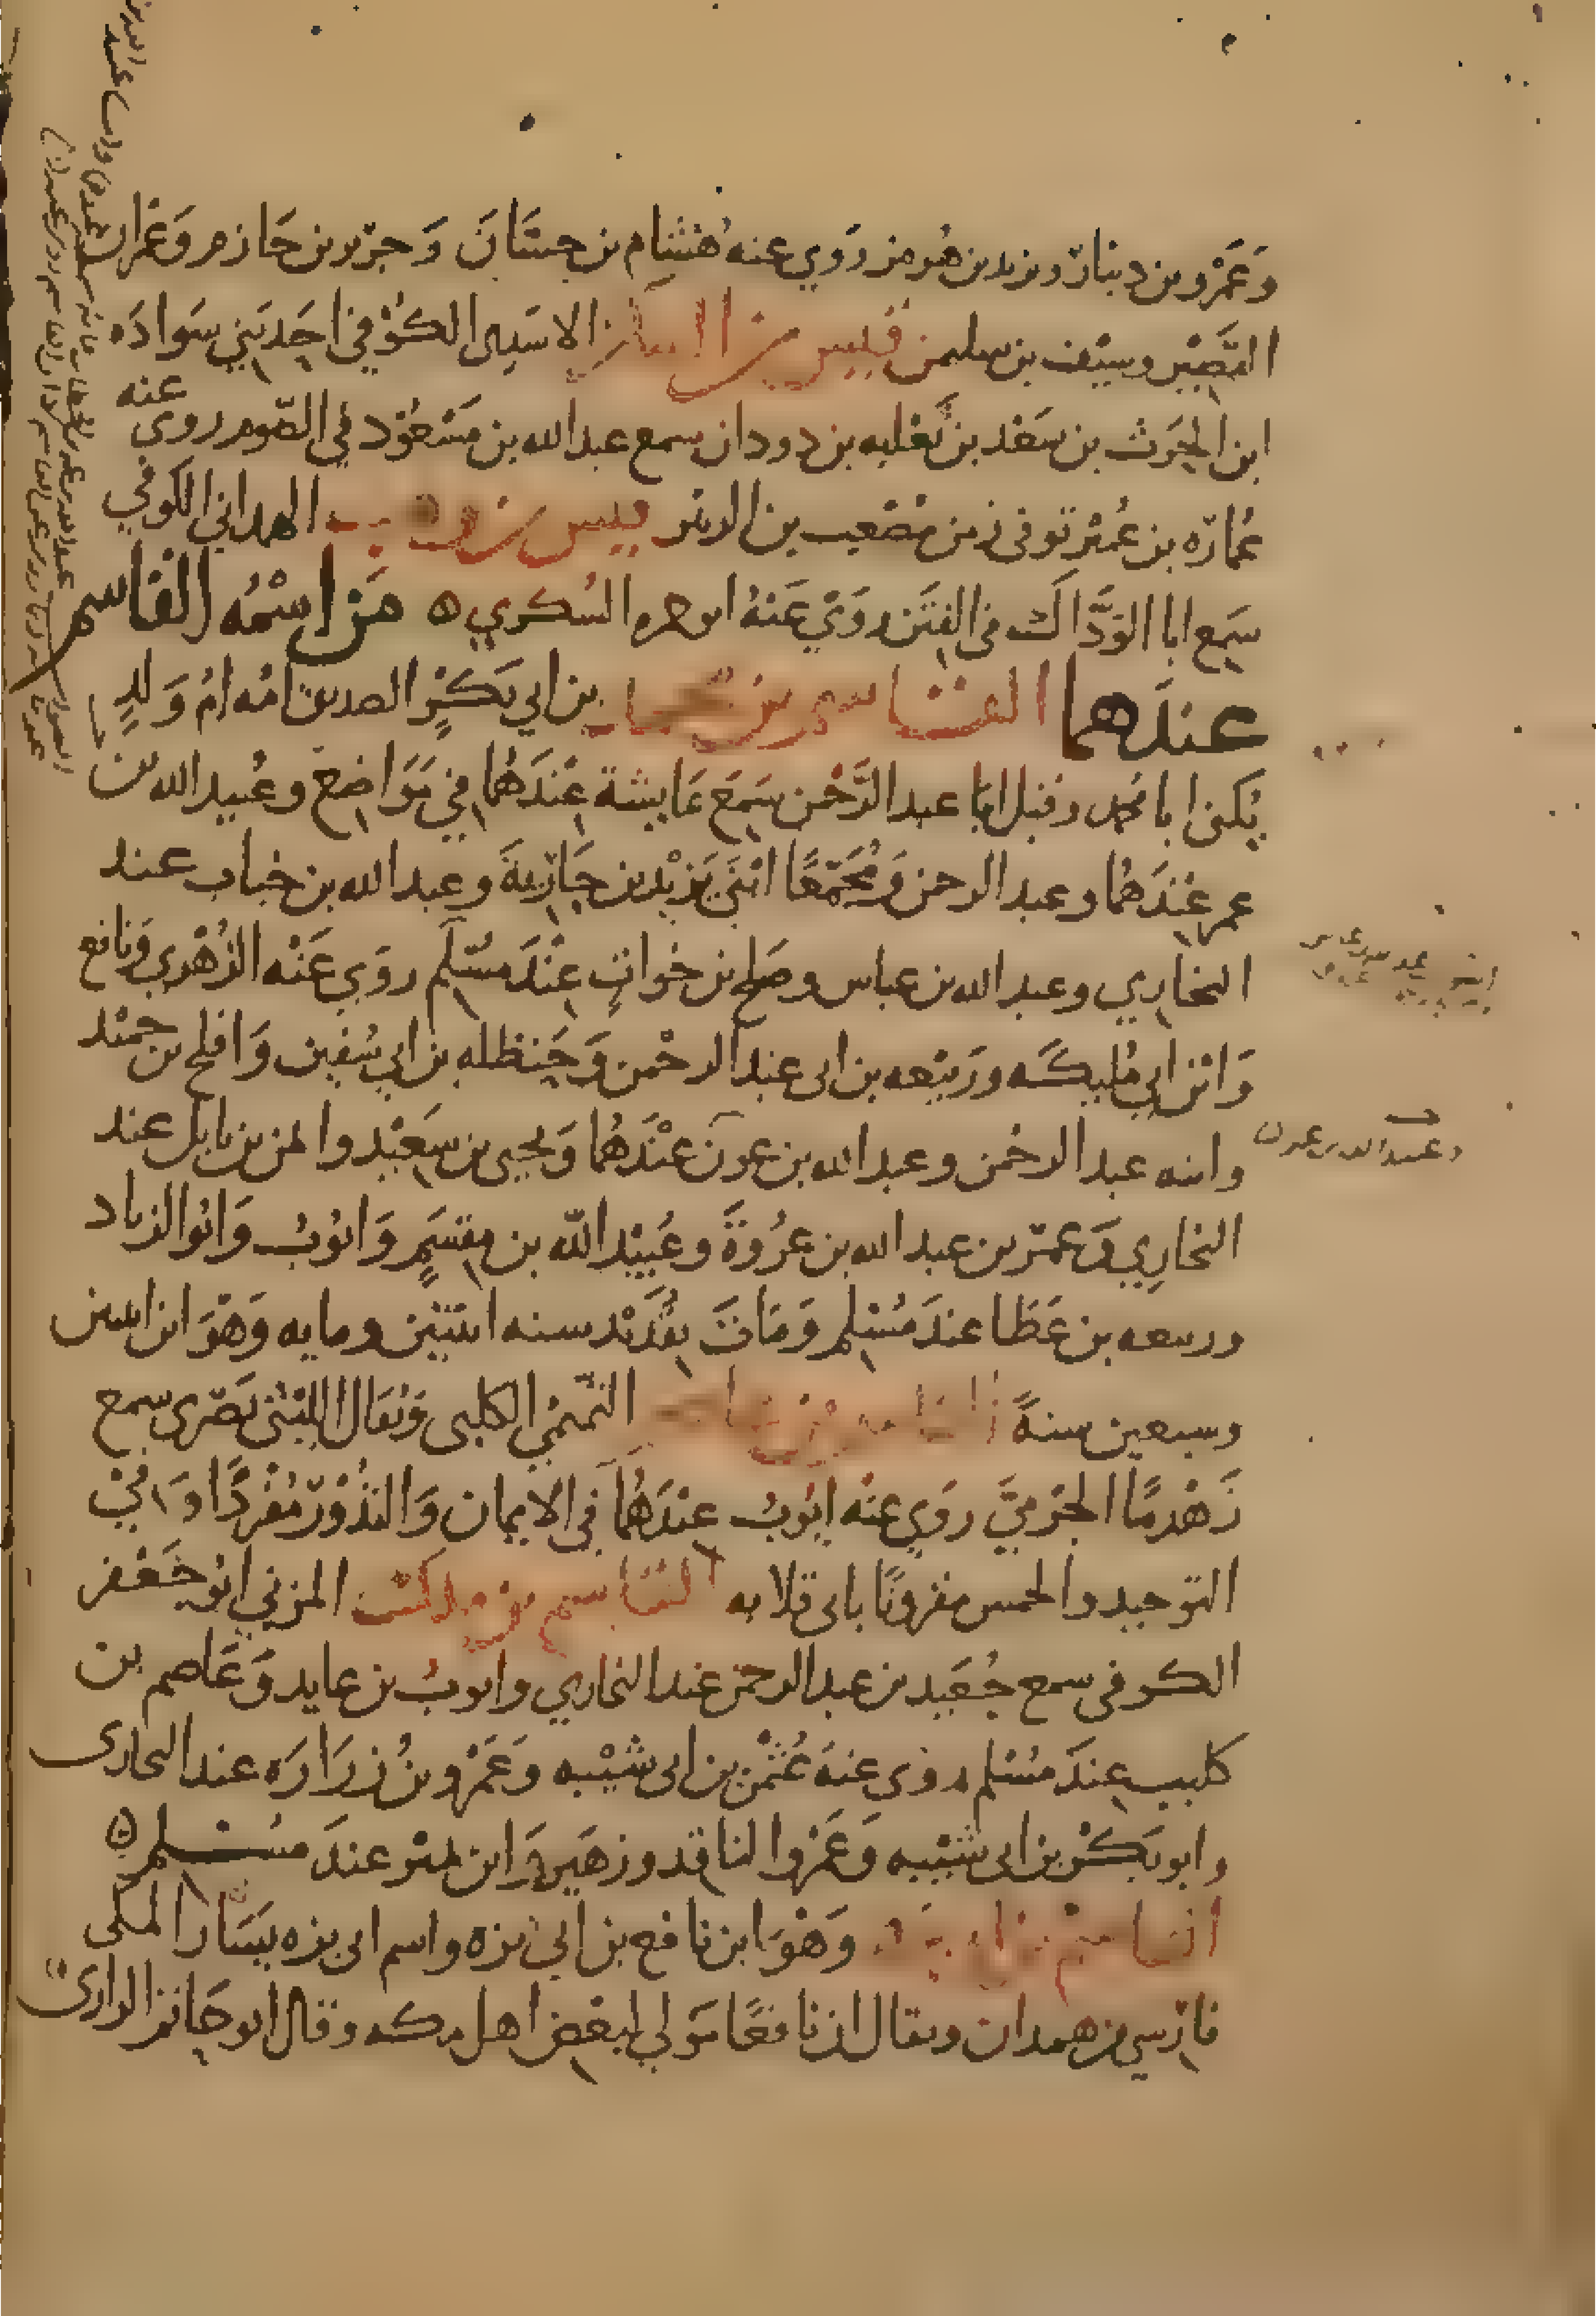 وَعَمْرو بن دينار ويزيد بن هُرمز رَوي عنه هشام بن حسَّانَ وَجرير بن حازم وَعمْران
القَصِيْر وسيْف بن سليمن قيس بن السكن الاسَدِي الكوْفي احَد بَني سَوادَه
ابن الحَرث بن سَعْد بن ثعْلبه بن دودان سمع عبد الله بن مَسْعُوْد في الصّوم روي عنه
عُمارَه بن عُميْر توفي زمن مصْعب بن الزبير قيس بن وهب الهمداني الكوفي
سَمِع ابا الوَدَّاك في الفتَن رَوَيْ عَنْهُ ابو حمزه السُكري ه مَن اسْمُه القاسم
عندَهما القاسم بن محمد بن ابي بَكْرٍ الصديق امّه امُ وَلدٍ
يُكنى ابا محمد وقيل ابا عبد الرَّحْمن سَمِعَ عَايشة عِنْدَهُما في مَوَاضِعَ وعُبيد الله بن
عمر عِنْدَهُما وعبد الرحمن وَمُجَمِّعًا ابْنَيْ يَزيْد بن جَارِيةَ وعبد الله بن خباب عند
البخاري وعبد الله بن عباس وصَالح بن خواتٍ عِنْدَ مسْلم روَي عَنْه الزُهْري وَنافع
وَابْن ابي مُليكَه ورَبيْعه بن ابي عبد الرحْمن وَحَنظله بن ابي سُفين وَافلح بن حميْد
وابنه عبد الرحْمن وعبد الله بن عون عنْدَهُما وَيحيى بن سَعيْد وايمن بن نابل عند
البخاري وَعمر بن عبد الله بن عرُوةَ وعُبيْد الله بن مِقسَمٍ وَايوْبُ وَابوا الزناد
وربيعه بن عَطَا عندَ مُسْلم وَمَاتَ بقُدَيْد سنه اثنتيْن ومايه وَهْوَ ابن اثنين
وسبعين سنةً القاسم بن عاصم التّمِيْمي الكلبي وَيُقال الليْثي بَصْري سمع
زَهْدمًا الجَرْميَّ رَوَي عنْه ايوبُ عنْدَهُما في الايمان وَالنذُوْر مُفْرَدًا وَفيْ
التوحيد والخمس مقرونًا بابي قلابه القاسم بن مالك المزني ابوْ جَعْفر
الكوفي سمع جُعَيد بن عبد الرحمن عند البخاري وايوبُ بن عايد وَعَاصم بن
كليب عندَ مُسْلم روى عنهَ عُثمْن بن ابي شيْبه وَعَمْرو بنُ زرَارَه عند البخاري
وابو بَكْر بن ابي شيْبه وَعَمْرو الناقد وزهَيرٌ وَابن نميْر عندَ مسْلم ه
القاسم بن ابي بزه وَهْوَ ابن نافع بن ابي بزه واسم ابي بزه يسَار المكي
فارسي من همدان ويقال ان نافعًا مَولي لبعْض اهل مكه وقال ابو حَاتم الرازي
وعبد الله بن عون